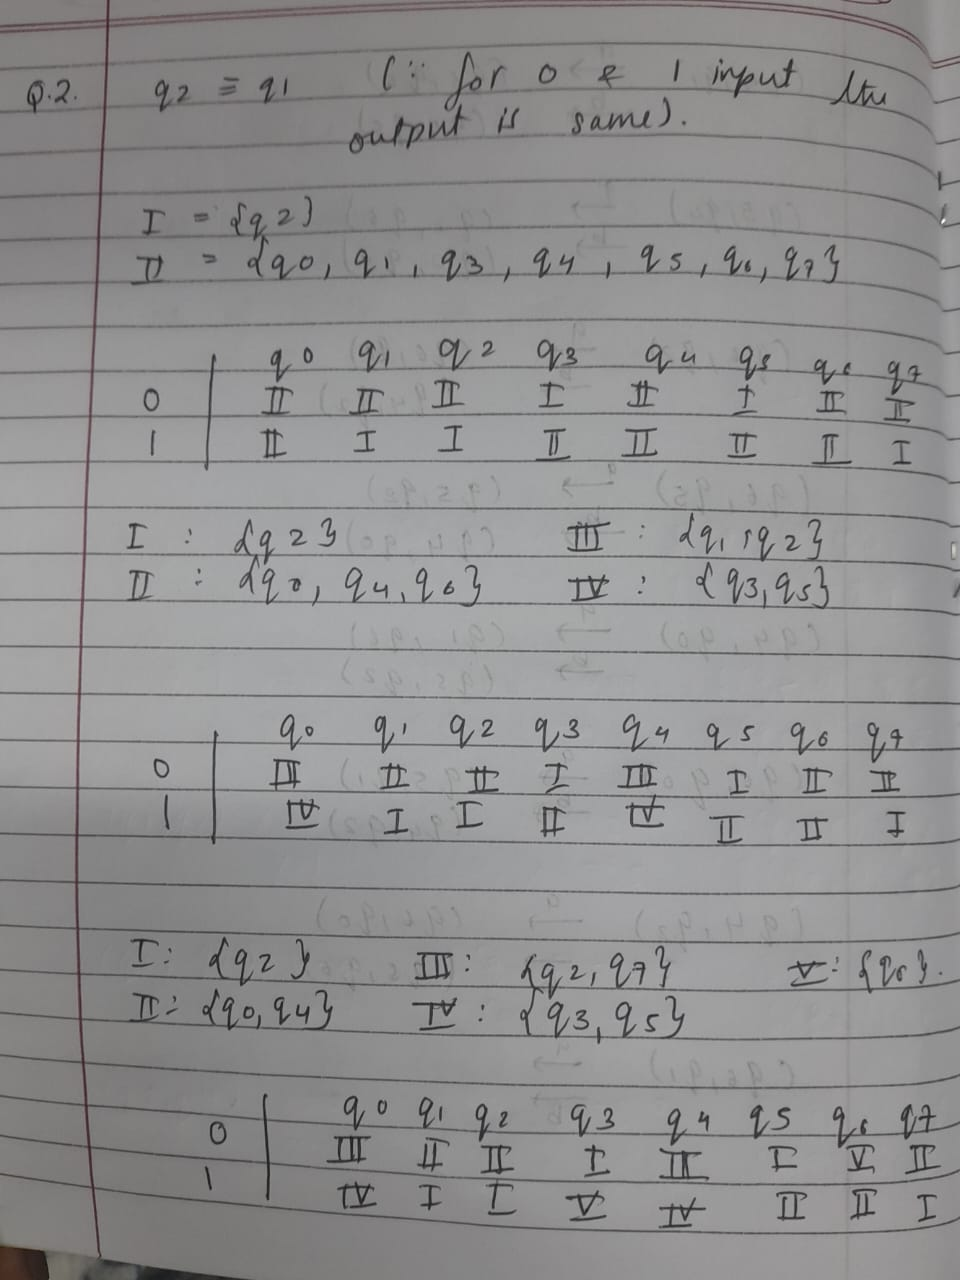 Q.2. q2 ≡ q1 (∵ for 0 & 1 input the
output is same).
I = {q2}
II = {q0, q1, q3, q4, q5, q6, q7}
q0 q1 q2 q3 q4 q5 q6 q7
0 II II II I II I II II
1 II I I II II II II I
I : {q2} III : {q1, q2}
II : {q0, q4, q6} IV : {q3, q5}
q0 q1 q2 q3 q4 q5 q6 q7
0 III II II I III I II II
1 IV I I II IV II II I
I: {q2} III: {q2, q7} V: {q6}.
II: {q0, q4} IV: {q3, q5}
q0 q1 q2 q3 q4 q5 q6 q7
0 III II II I III I V II
1 IV I I V IV II II I